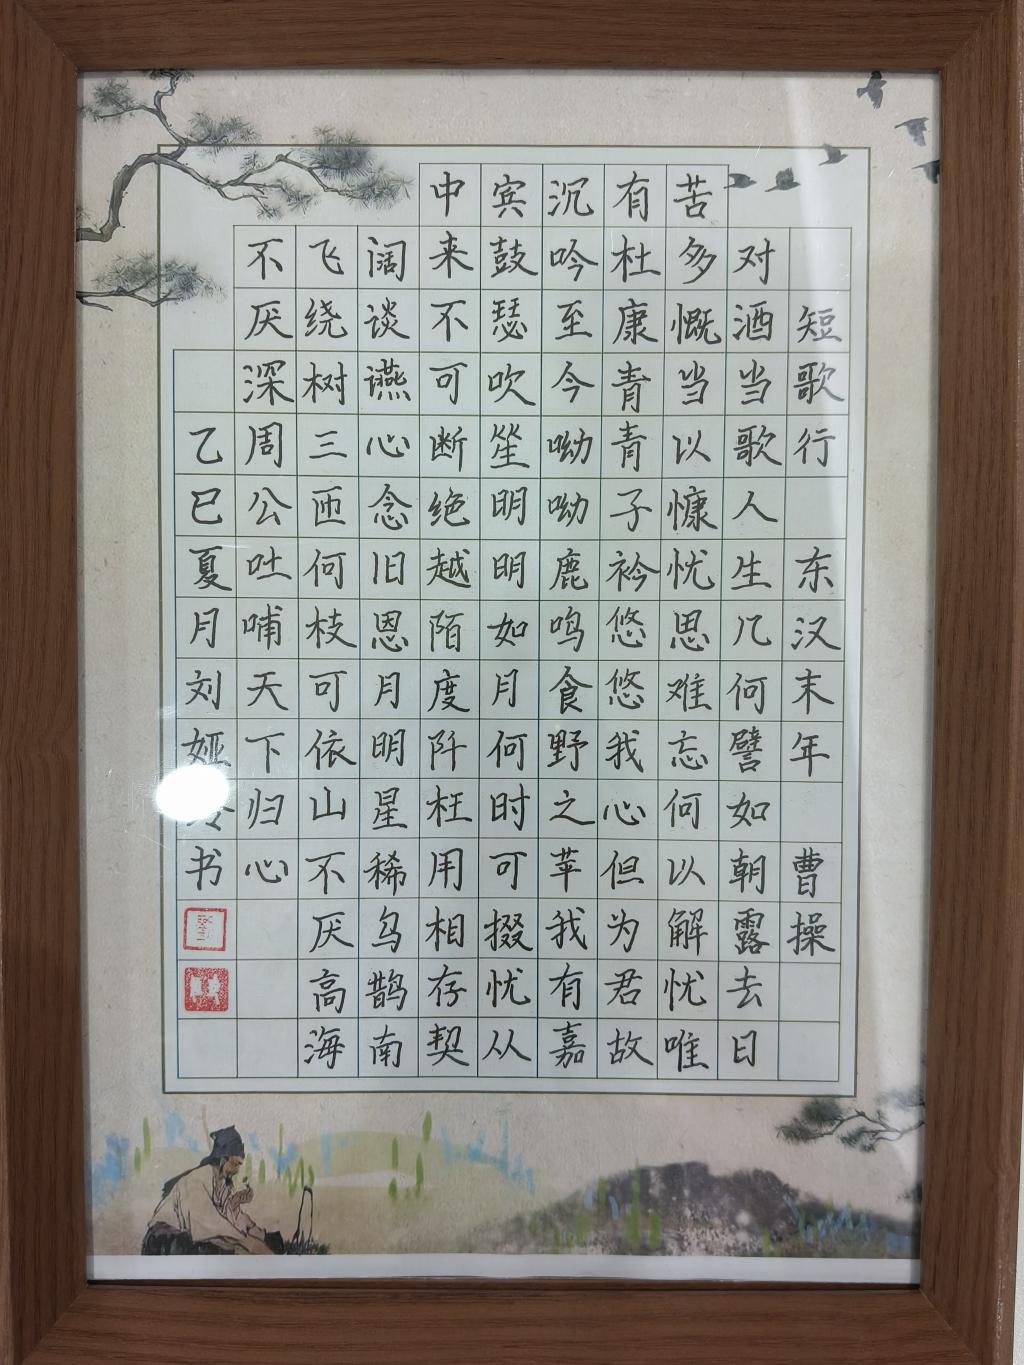 短歌行 东汉末年 曹操
对酒当歌人生几何譬如朝露去日
苦多慨当以慷忧思难忘何以解忧唯
有杜康青青子衿悠悠我心但为君故
沉吟至今呦呦鹿鸣食野之苹我有嘉
宾鼓瑟吹笙明明如月何时可掇忧从
中来不可断绝越陌度阡枉用相存契
阔谈䜩心念旧恩月明星稀乌鹊南
飞绕树三匝何枝可依山不厌高海
不厌深周公吐哺天下归心
乙巳夏月刘娅书